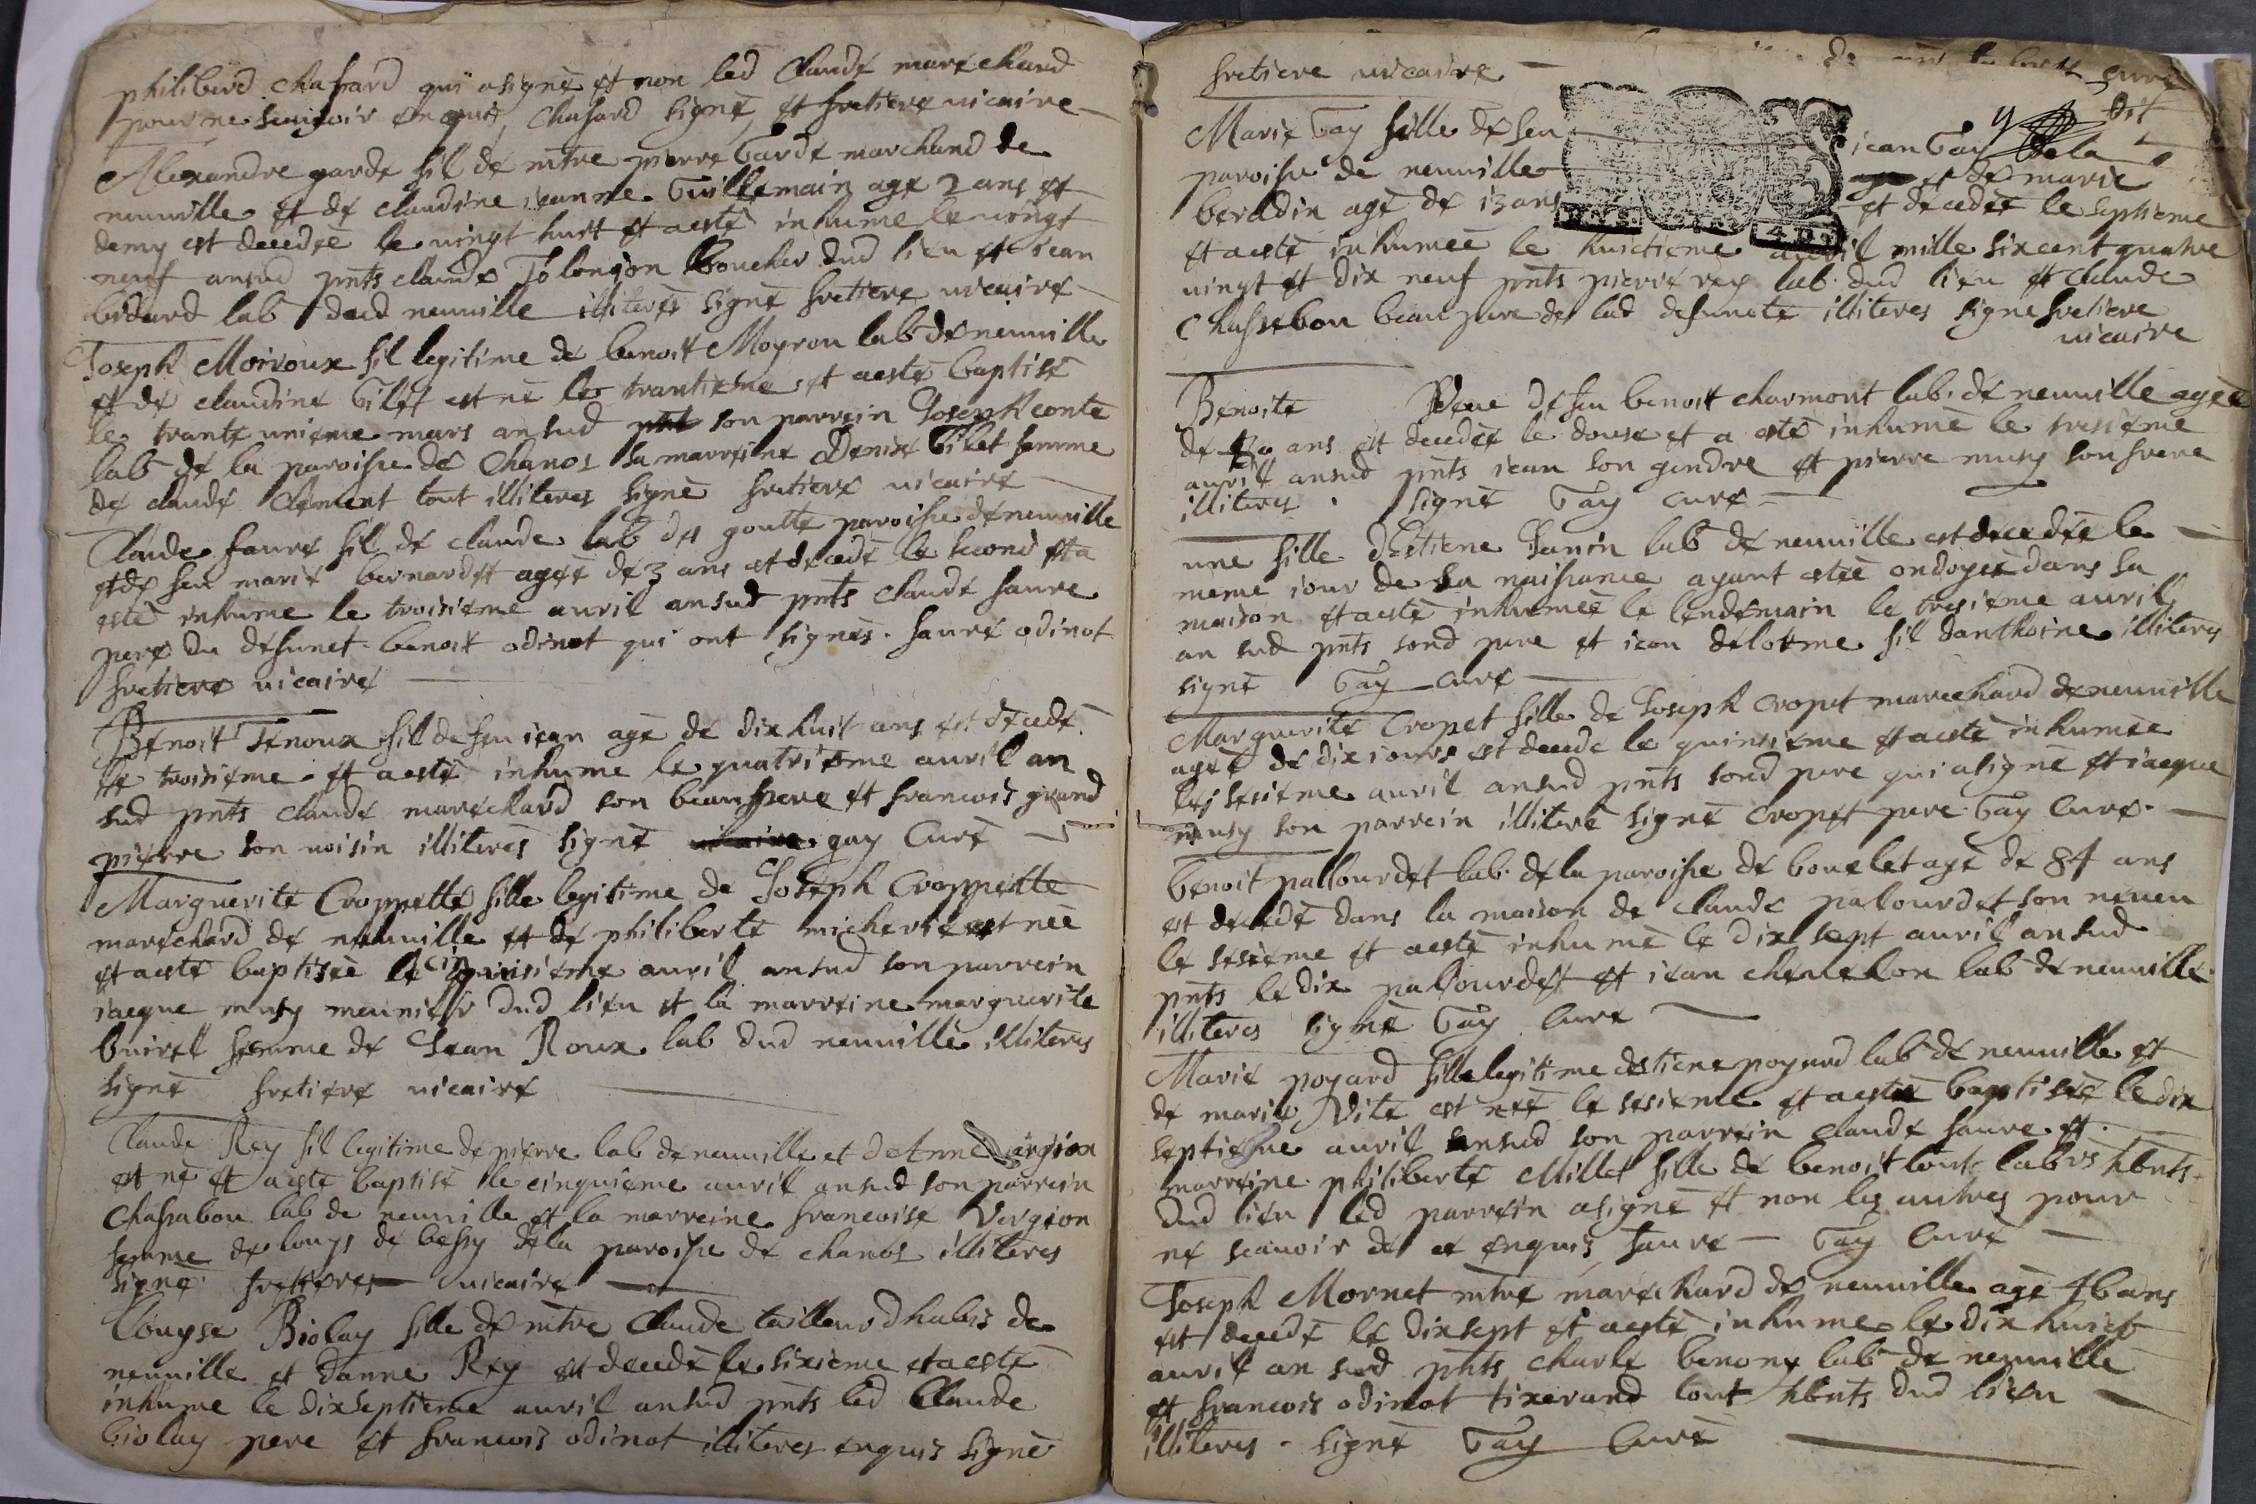 philiberd chafsard qui a signè et non led Claude marechard
pour ne scavoir enquis, chafsard signé, et fretiere vicaire
Alexandre garde fil de mtre pierre Garde marchand de
neuville et de claudine jeanne Guillemain age 2 ans et
demy est decedée le vingt huit et a esté inhume le vingt
neuf ansud pnts claude Tolonjon boucher dud lieu et jean
bidard lab dud neuville illiterès signé fretiere vicaire
Joseph Moiroux fil legitime de benoit Moyrou lab de neuville
et de claudine Gilet est né le trantieme et a esté baptisé
le trante unieme mars ansud son parrein Joseph conte
lab de la paroisse de Chanos sa marreine Denise Gilet femme
de claude Clement tout illiteres signé fretiere vicaire
Claude faure fil de claude lab des goutte paroisse de neuville
et de feu marie bernardet agee de 3 ans et decedé le second et a
esté inhume le troisieme avril ansud pnts claude faure
pere du defunct benoit odinot qui ont signés. faure odinot
fretiere vicaire
Benoit Tenoux fil de feu jean age de dix huit ans est decedé
le troisieme et a esté inhume le quatrieme avril an
sud pnts claude marechard son beau frere et francois grand
pierre son voisin illiterès signé gay Curé
Marguerite Croppette fille legitime de Joseph Croppette
marechard de neuville et de philiberte micherie est née
et a esté baptisée le cinquisieme avril ansud son parrein
jacque musy meunier dud lieu et la marreine marguerite
buiret femme de Jean Roux lab dud neuville illiteres
signé fretiere vicaire
Claude Rey fil legitime de pierre lab de neuville et d'Anne Vergion
et né et a esté baptisé le cinquieme avril ansud son parrein
Chassabou lab de neuville et la marreine francoise Vergion
femme de louys de bessy de la paroisse de chanos illiteres
signé. fretieres vicaire
Louyse Biolay fille de mtre Claude tailleur d'habis de
neuville et d'anne Rey est decedé le sixieme et a esté
inhume le dixseptieme avril ansud pnts led Claude
biolay pere et francois odinot illiteres enquis signé
fretiere vicaire
Marie Gay fille de feu jean Gay dit
paroisse de neuville de la et de marie
beradin agé de 13 ans et decedée le septieme
et a esté inhumeé le huictieme avril mille sixcent quatre
vingt et dix neuf pnts pierre rey lab. dud lieu et claude
Chassebou beau pere de lad defuncte illiteres signe fretiere
vicaire
Benoite Veue de feu benoit charmont lab. de neuville ageé
de ans est decedée le douse et a esté inhumé le tresieme
avril ansud pnts jean son gendre et pierre musy son frere
illiteres. signé Gay curé
une fille d'Estiene Janin lab de neuville est decedée le
meme jour de sa naissance ayant estée ondoyée dans sa
maison et a esté inhumeé le lendemain le tresieme avril
an sud pnts sond pere et jean delorme fil d'anthoine illiteres
signé Gay curé
Marguerite Cropet fille de Joseph cropet marechard de neuville
ageé de dix jours est decedé le quinsieme et a esté inhumée
le sesieme avril ansud pnts sond pere qui a signé et jacque
musy son parrein illiteré signé cropet pere Gay Curé.
Benoit pallourdet lab. de la paroisse de bouelet agé de 84 ans
est decedé dans la maison de claude palourdet son neveu
le sesieme et a esté inhumé le dix sept avril ansud
pnts le dix palourdet et jean chenelon lab de neuville
illiteres signé Gay Curé
Marie poyard fille legitime d'estiene poyard lab de neuville et
de marie Vite est née le sesieme et a esté baptiseé le dix
septieme avril ansud son parrein claude faure et
marreine philiberte Millet fille de benoit tout labrs hbnts
dud lieu led parrein a signé et non les autres pour
ne scavoir de ce enquis, faure Gay Curé
Joseph Mornet mtre marechard de neuville agé 46 ans
est decedé le dixsept et a esté inhume le dix huict
avril an sud pnts charle benone lab de neuville
et francois odinot tixerand tout hbnts dud lieu
illiteres. signé Gay Curé